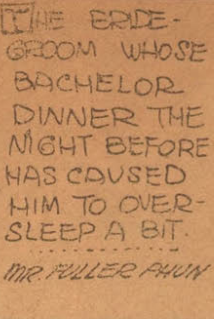 THE BRIDE-
GROOM WHOSE
BACHELOR
DINNER THE
NIGHT BEFORE
HAS CAUSED
HIM TO OVER-
SLEEP A BIT.
MR. FULLER PHUN